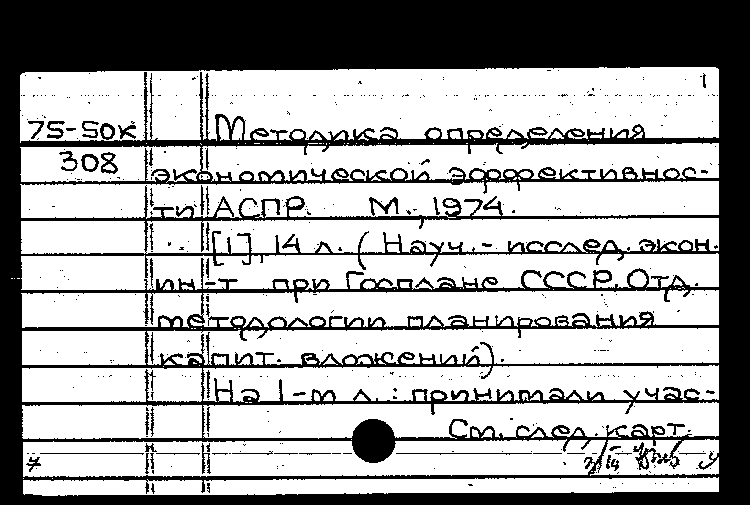 1
75-50к Методика определения
308 экономической эффективнос-
ти АСПР. М., 1974.
[1], 14 л. (Науч.-исслед. экон.
ин-т при Госплане СССР. Отд.
методологии планирования
капит. вложений).
На 1-м л.: принимали учас-
См. след. карт.